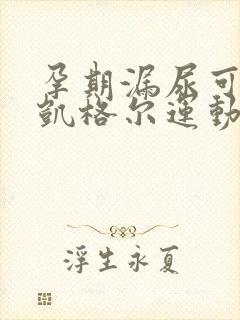 孕期漏尿可
凯格尔运动
浮生永夏